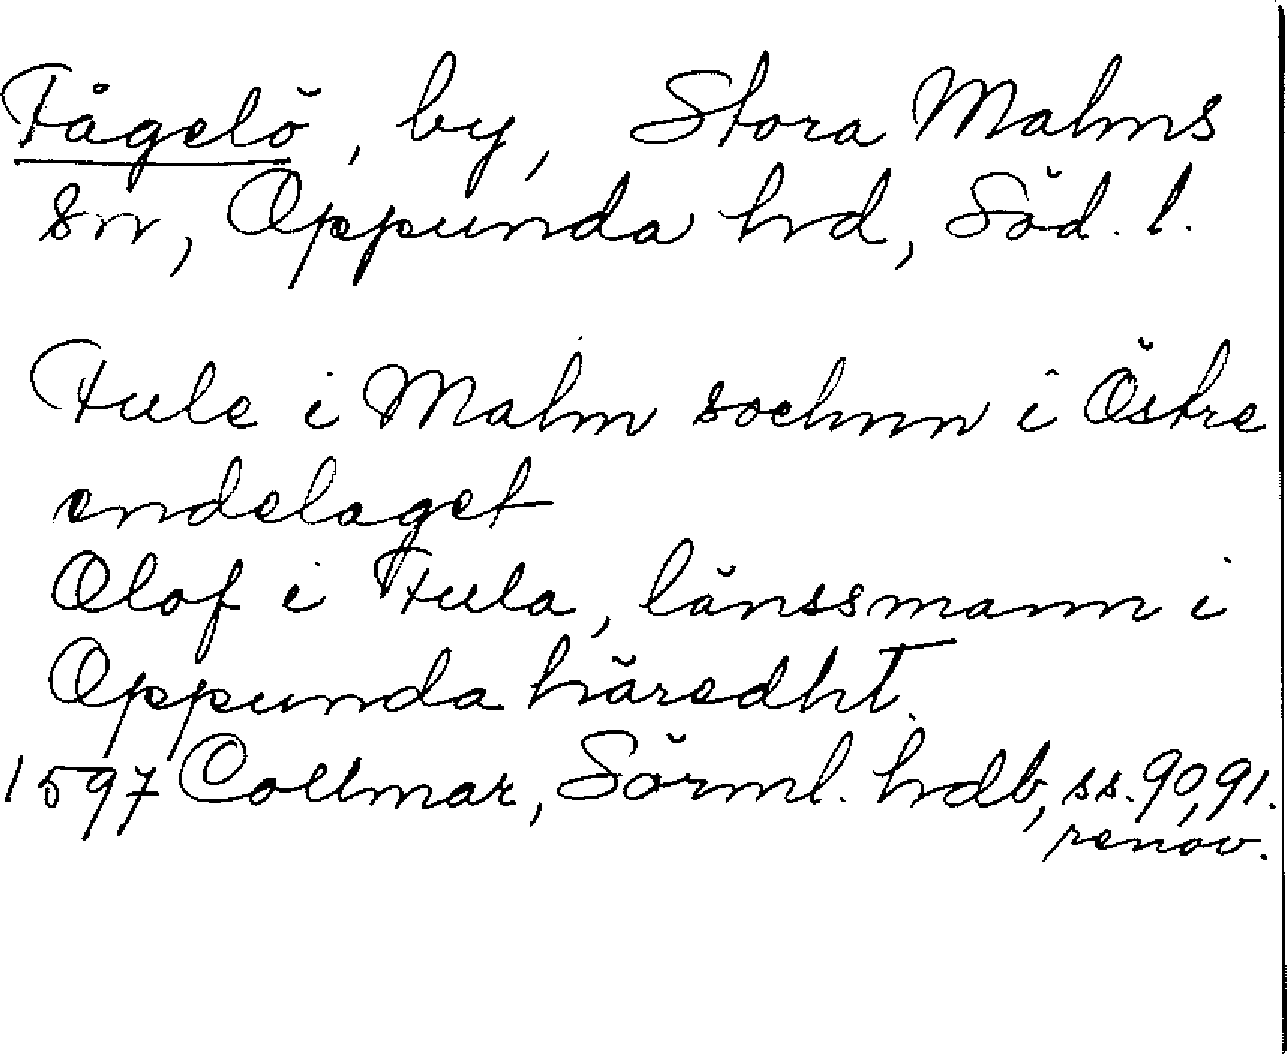 Fågelö, by, Stora Malms
sn, Oppunda hrd, Söd. l.
Fule i Malm sochnn i Östre
endelaget
Olof i Fula, länssmann i
Oppunda häredht.
1597 Collmar, Sörml. hdb, ss. 90, 91.
renov.